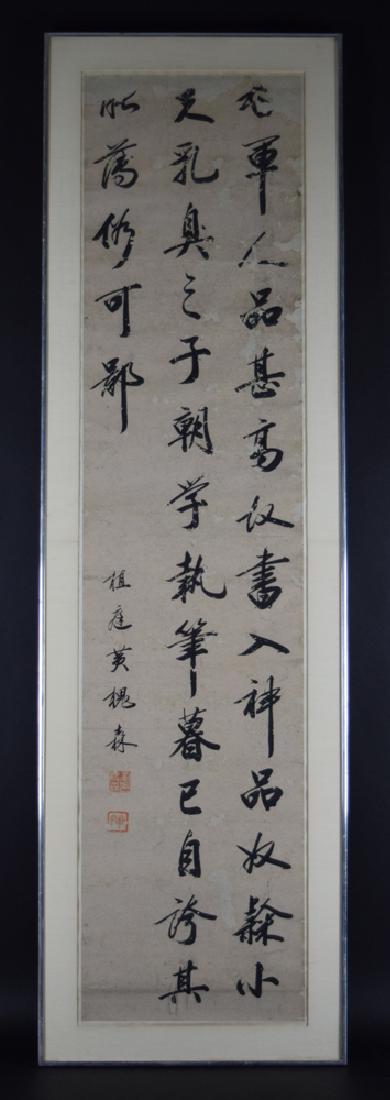 右軍人品甚高故書入神品奴隸小
夫乳臭之子朝学執筆暮已自誇其
能薄俗可鄙
植庭黄槐森